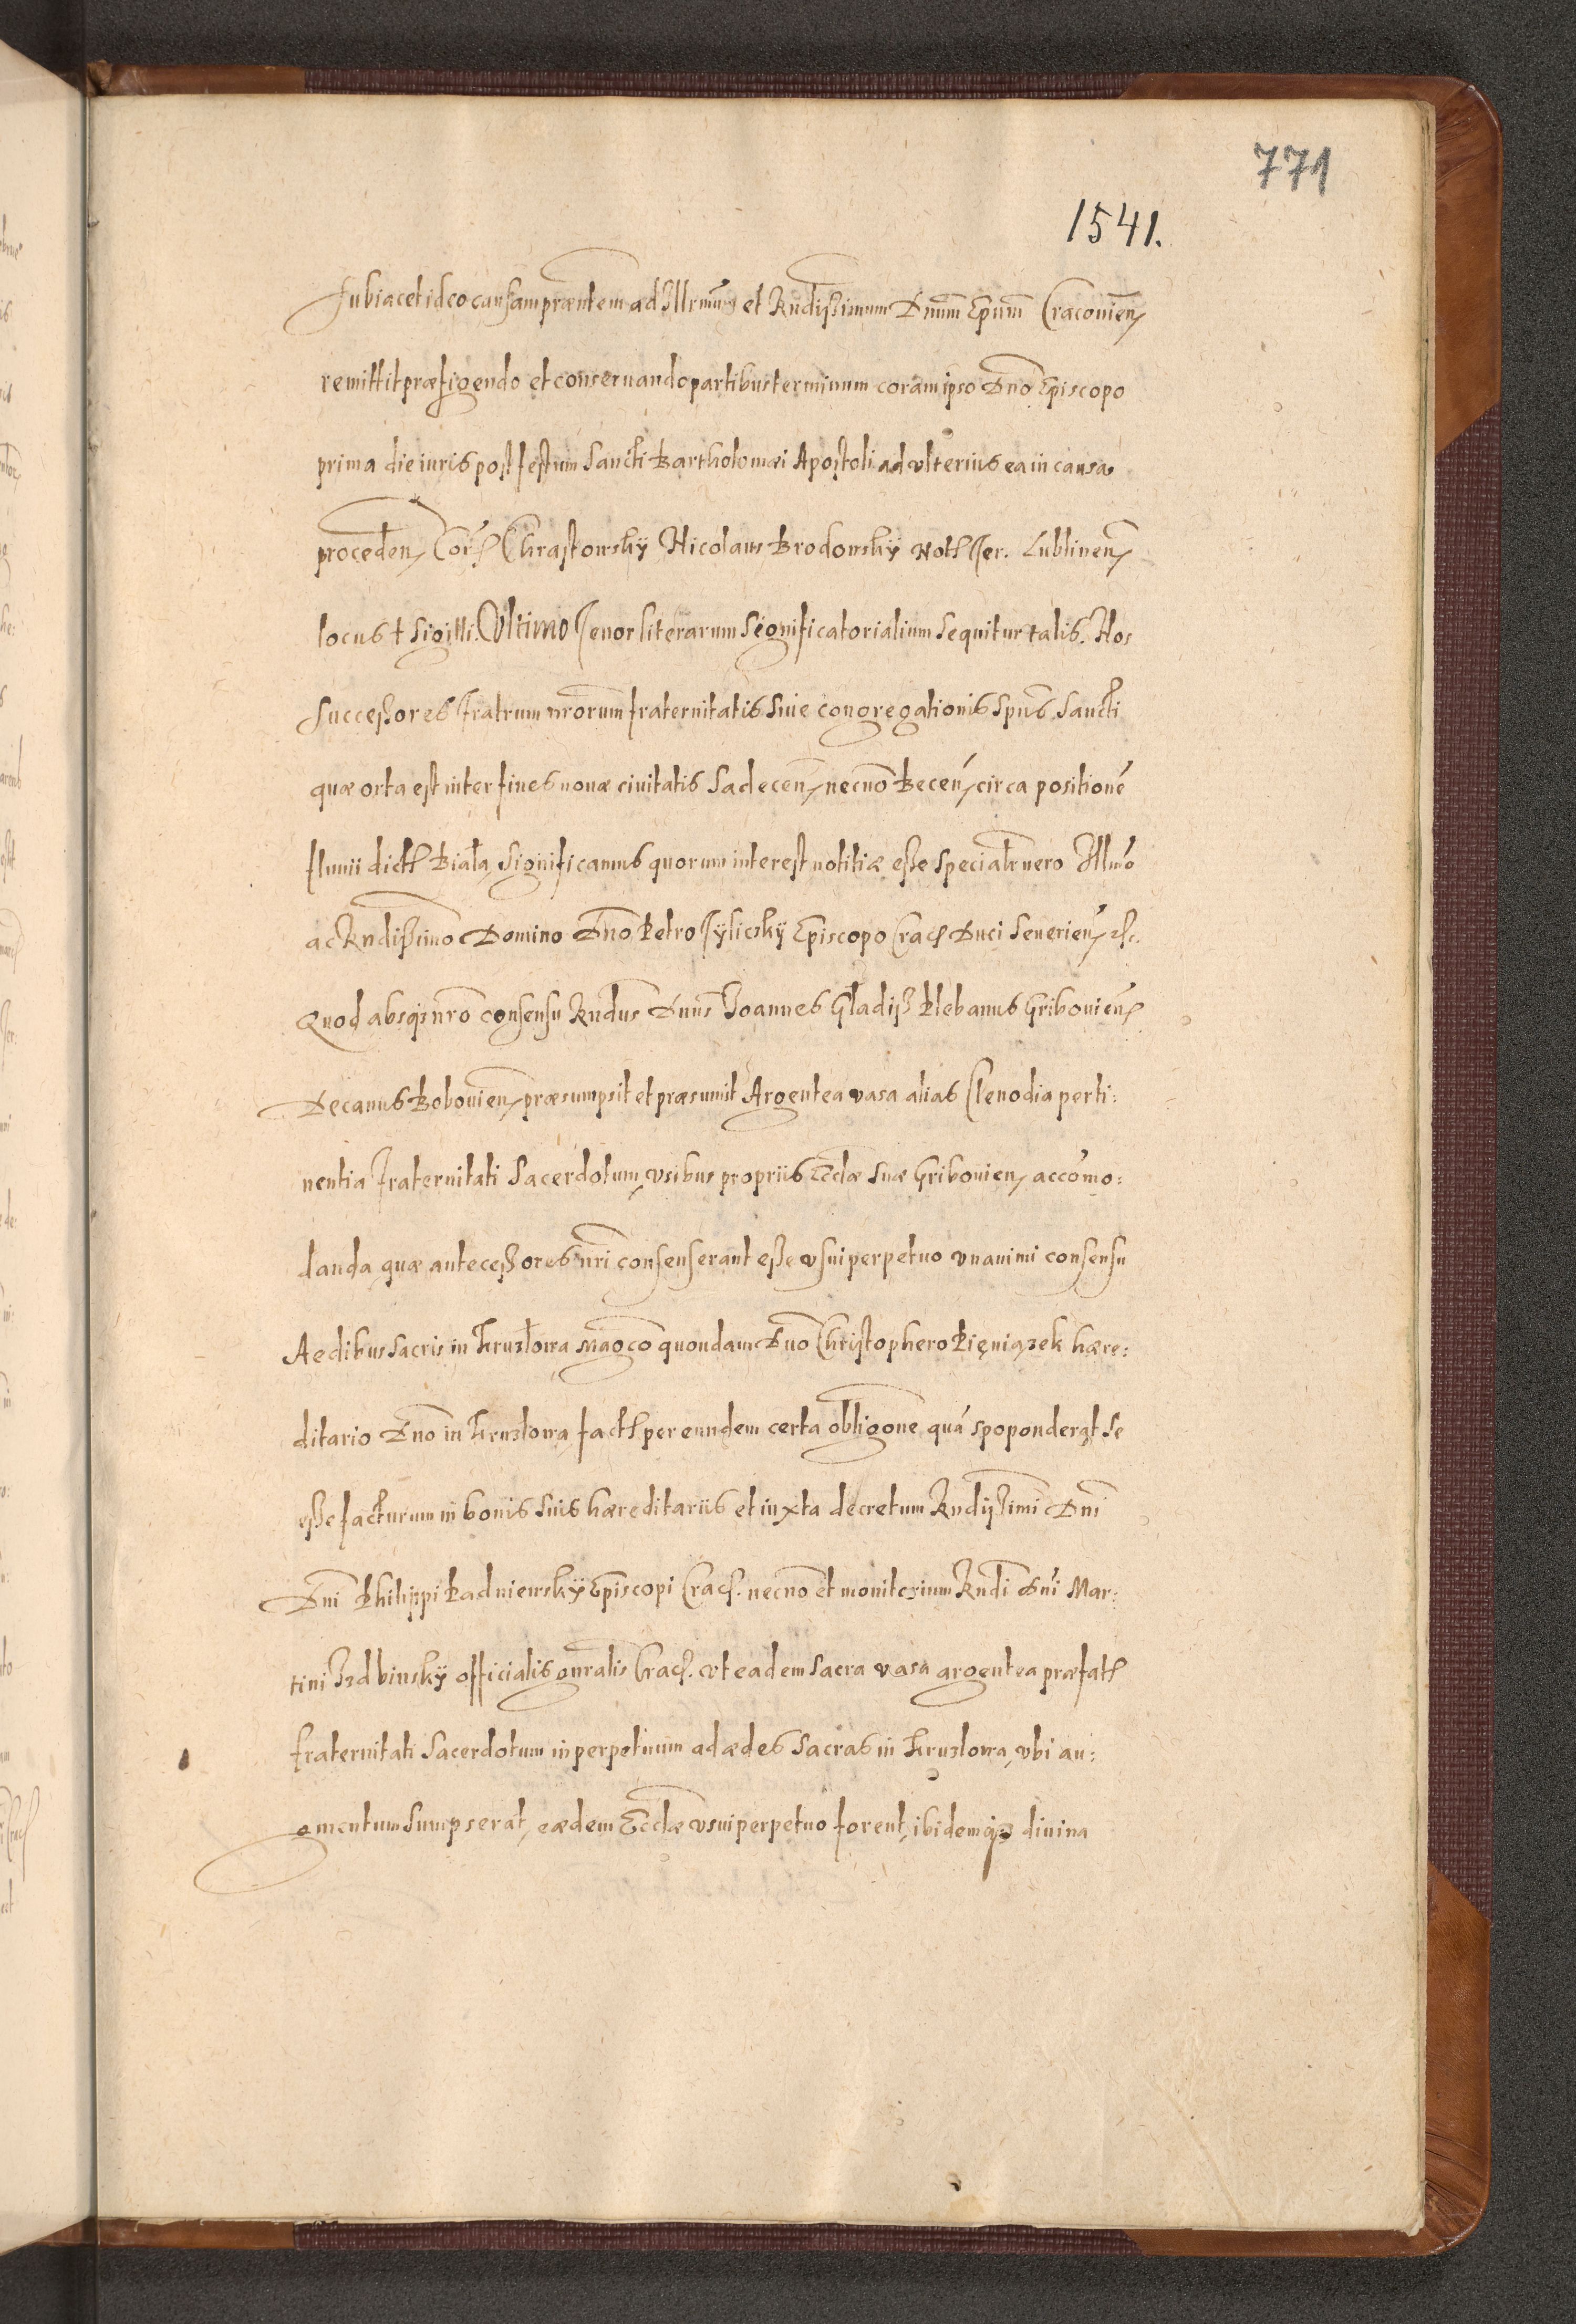 771
1541.
subiacet ideo causam præntem ad Illrmū et Rndissimum Dnūm Epum Cracouien
remittit præfigendo et conseruando partibus terminum coram ipso Dno Episcopo
prima die iuris post festum Sancti Bartholomæi Apostoli ad vlterius ea in causa
proceden Chrastowskÿ Nicolaus Brodowskÿ Not Ter. Lublinen
locus † Sigilli. Vltimo Tenor literarum Significatorialium Sequitur talis. Nos
Successores fratrum nrorum fraternitatis Siue congregationis Spūs Sancti
quæ orta est inter fines nouæ ciuitatis Sadecen, necno Becen, circa positionē
fluuii dict Biała, Significamus quorum interest notitiæ esse Specialr uero Illmo
ac Rndissimo Domino Dno Petro Tÿlicskÿ Episcopo Crac Duci Seuerien etc.
Quod absq nro consensu Rndus Dnus Joannes Gładiss Plebanus Gribouien
Decanus Bobouien, præsumpsit et præsumit Argentea vasa alias Clenodia perti:
nentia fraternitati Sacerdotum, vsibus propriis Ecclæ Suæ Gribouien, accomo:
danda quæ antecessores nri consenserant esse vsui perpetuo vnanimi consensu
Aedibus Sacris in Kruzlowa Magco quondam Dno Christophero Pięniązek hære:
ditario Dno in Kruzlowa, fact per eundem certa obligone, quá spoponderat Se
esse facturum in bonis Suis hæreditariis et iuxta decretum Rndissimi Dni
Dni Philippi Padniewskÿ Episcopi Crac. necno et monitorium Rndi Dni Mar:
tini Izdbinskÿ officialis gnralis Crac. vt eadem Sacra vasa argentea præfat
fraternitati Sacerdotum in perpetuum ad ædes Sacras in Kruzlowa, vbi au:
gmentum Sumpserat, eædem Ecclæ vsui perpetuo forent, ibidemq divina